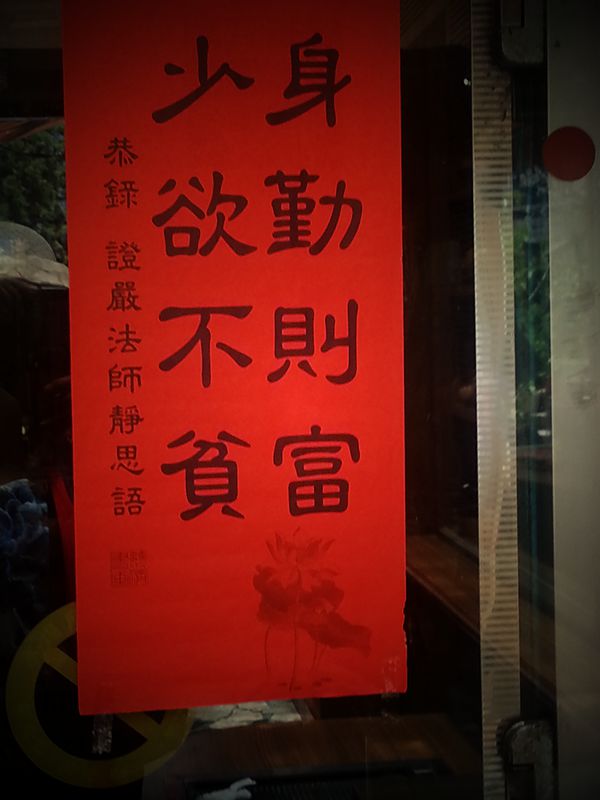 身勤則富
少欲不貧
恭錄 證嚴法師靜思語